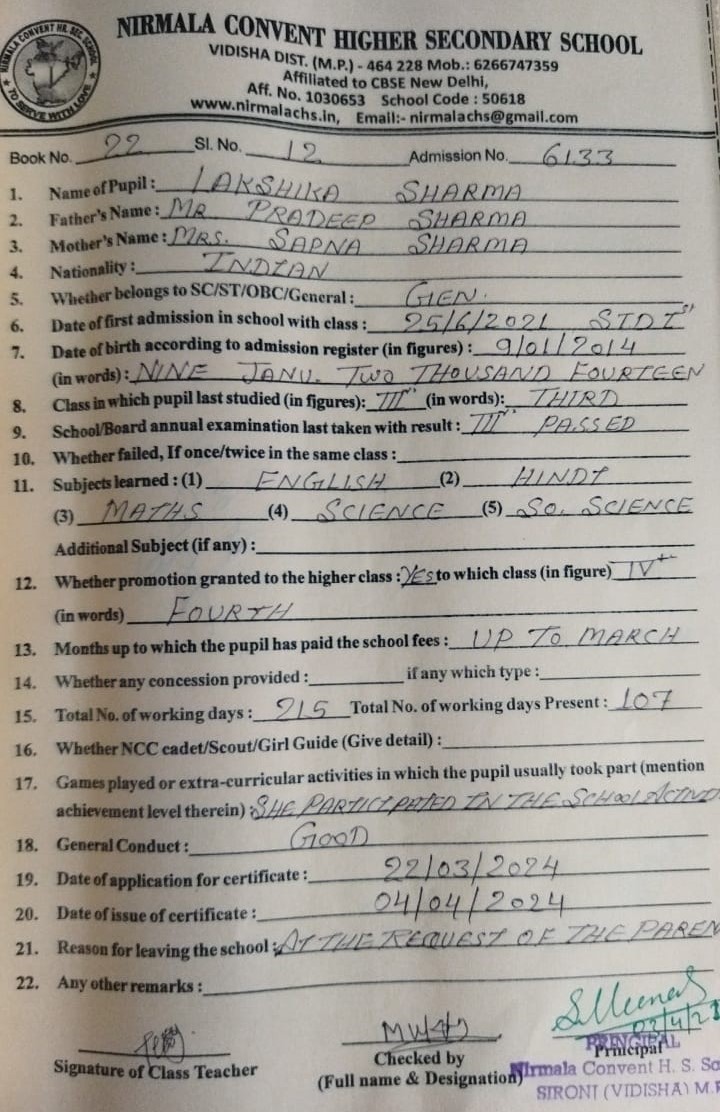 NIRMALA CONVENT HR. SEC. SCHOOL
TO SERVE WITH LOVE
NIRMALA CONVENT HIGHER SECONDARY SCHOOL
VIDISHA DIST. (M.P.) - 464 228 Mob.: 6266747359
Affiliated to CBSE New Delhi,
Aff. No. 1030653 School Code : 50618
www.nirmalachs.in, Email:- nirmalachs@gmail.com
Book No. 22 Sl. No. 12 Admission No. 6133
1. Name of Pupil : LAKSHIKA SHARMA
2. Father's Name : MR PRADEEP SHARMA
3. Mother's Name : MRS. SAPNA SHARMA
4. Nationality : INDIAN
5. Whether belongs to SC/ST/OBC/General : GEN.
6. Date of first admission in school with class : 25/6/2021 STD Ist
7. Date of birth according to admission register (in figures) : 9/01/2014
(in words) : NINE JANU. TWO THOUSAND FOURTEEN
8. Class in which pupil last studied (in figures): III (in words): THIRD
9. School/Board annual examination last taken with result : III PASSED
10. Whether failed, If once/twice in the same class :
11. Subjects learned : (1) ENGLISH (2) HINDI
(3) MATHS (4) SCIENCE (5) SO. SCIENCE
Additional Subject (if any) :
12. Whether promotion granted to the higher class : Yes to which class (in figure) IV
(in words) FOURTH
13. Months up to which the pupil has paid the school fees : UP TO MARCH
14. Whether any concession provided : if any which type :
15. Total No. of working days : 215 Total No. of working days Present : 107
16. Whether NCC cadet/Scout/Girl Guide (Give detail) :
17. Games played or extra-curricular activities in which the pupil usually took part (mention
achievement level therein) : SHE PARTICIPATED IN THE SCHOOL ACTIVI
18. General Conduct : GOOD
19. Date of application for certificate : 22/03/2024
20. Date of issue of certificate : 04/04/2024
21. Reason for leaving the school : AT THE REQUEST OF THE PAREN
22. Any other remarks :
Signature of Class Teacher
Checked by
(Full name & Designation)
Principal
PRINCIPAL
Nirmala Convent H. S. Sc
SIRONJ (VIDISHA) M.P